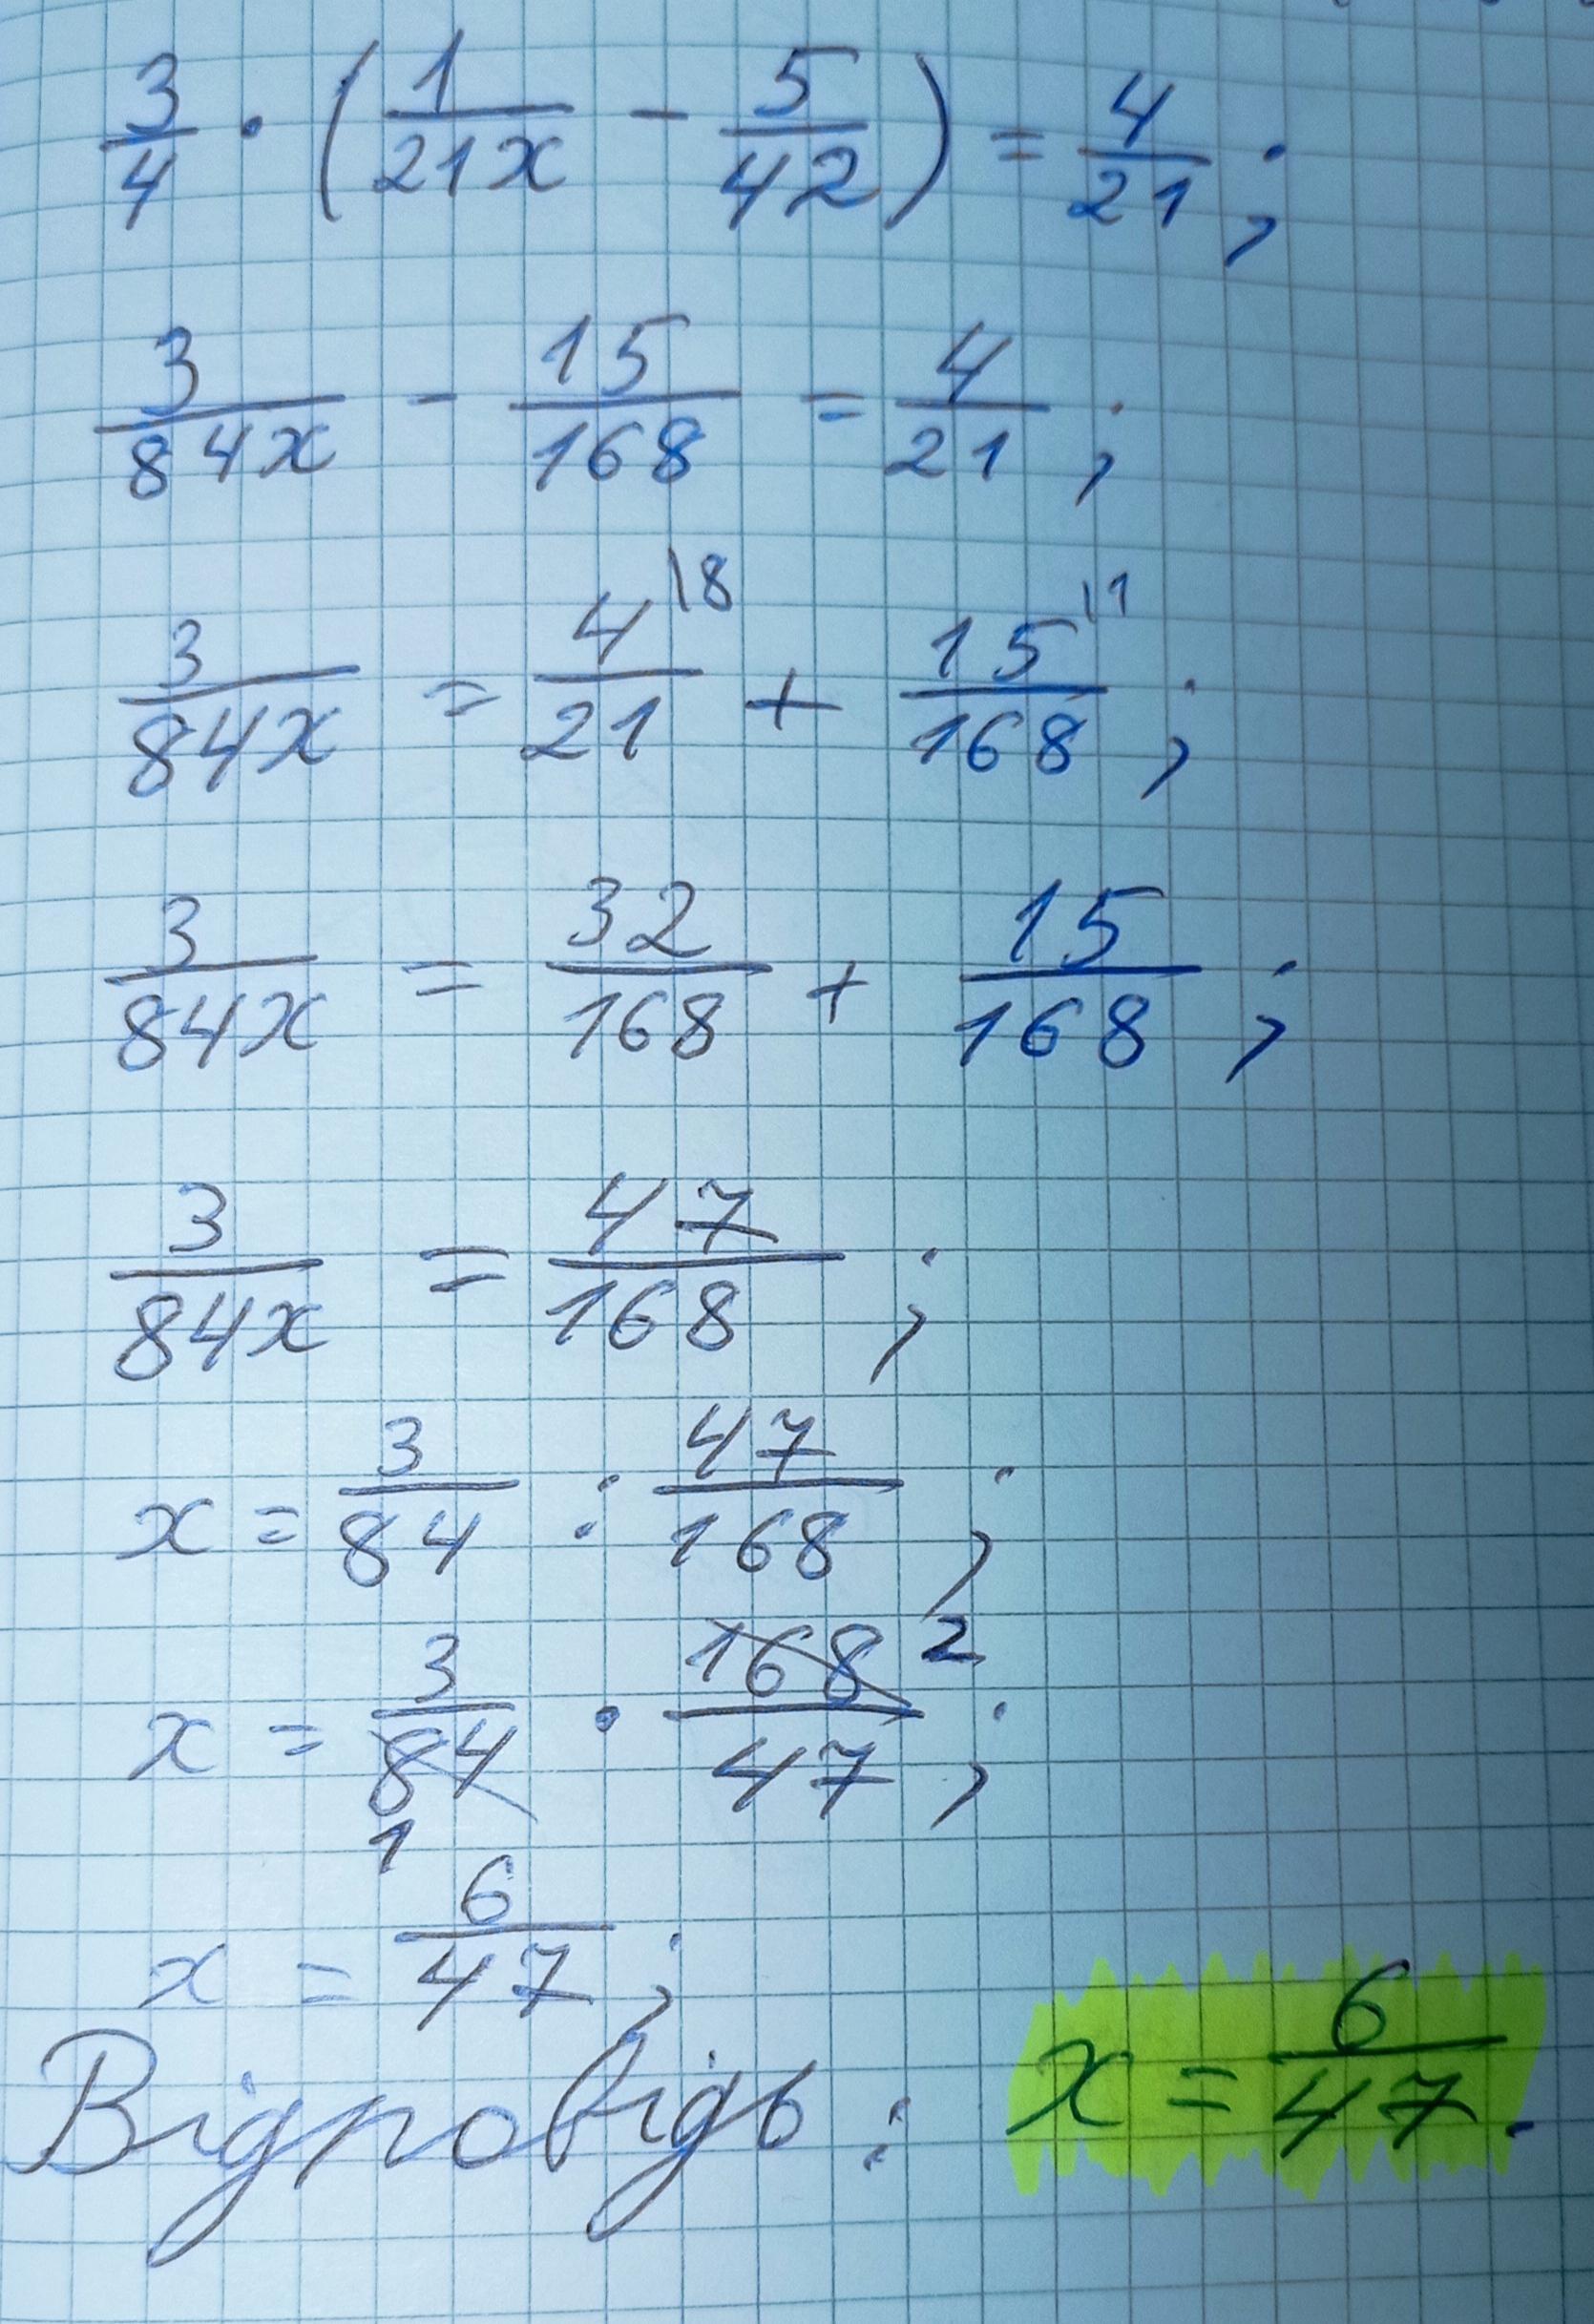 3/4 · (1/21x - 5/42) = 4/21;
3/84x - 15/168 = 4/21;
3/84x = 4\8/21 + 15\1/168;
3/84x = 32/168 + 15/168;
3/84x = 47/168;
x = 3/84 : 47/168;
x = 3/84 1 · 168 2/47;
x = 6/47;
Відповідь: x = 6/47.